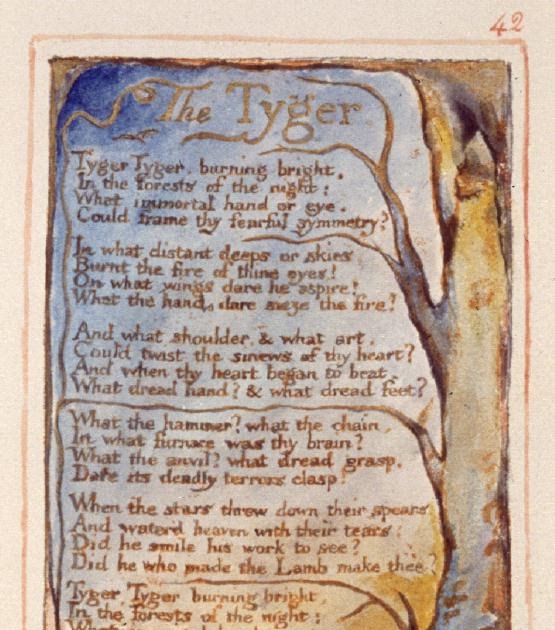 42
The Tyger
Tyger Tyger, burning bright,
In the forests of the night:
What immortal hand or eye,
Could frame thy fearful symmetry?
In what distant deeps or skies
Burnt the fire of thine eyes!
On what wings dare he aspire!
What the hand, dare sieze the fire?
And what shoulder, & what art,
Could twist the sinews of thy heart?
And when thy heart began to beat,
What dread hand? & what dread feet?
What the hammer? what the chain,
In what furnace was thy brain?
What the anvil? what dread grasp,
Dare its deadly terrors clasp!
When the stars threw down their spears
And water'd heaven with their tears:
Did he smile his work to see?
Did he who made the Lamb make thee?
Tyger Tyger burning bright,
In the forests of the night: